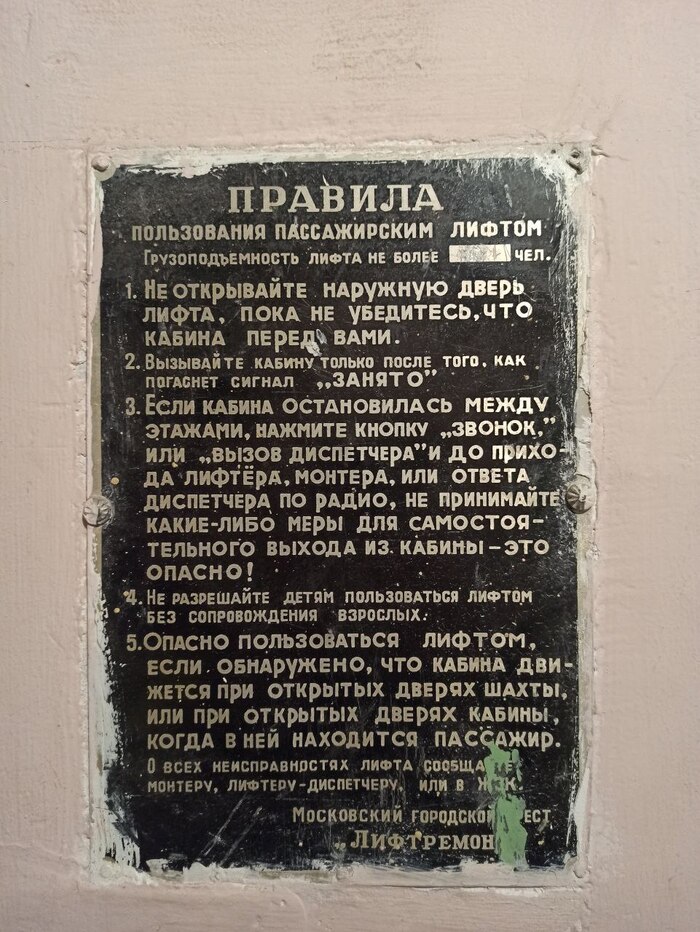 ПРАВИЛА
ПОЛЬЗОВАНИЯ ПАССАЖИРСКИМ ЛИФТОМ
ГРУЗОПОДЪЕМНОСТЬ ЛИФТА НЕ БОЛЕЕ ЧЕЛ.
1. НЕ ОТКРЫВАЙТЕ НАРУЖНУЮ ДВЕРЬ
ЛИФТА, ПОКА НЕ УБЕДИТЕСЬ, ЧТО
КАБИНА ПЕРЕД ВАМИ.
2. ВЫЗЫВАЙТЕ КАБИНУ ТОЛЬКО ПОСЛЕ ТОГО, КАК
ПОГАСНЕТ СИГНАЛ „ЗАНЯТО”
3. ЕСЛИ КАБИНА ОСТАНОВИЛАСЬ МЕЖДУ
ЭТАЖАМИ, НАЖМИТЕ КНОПКУ „ЗВОНОК,”
ИЛИ „ВЫЗОВ ДИСПЕТЧЕРА” И ДО ПРИХО-
ДА ЛИФТЁРА, МОНТЕРА, ИЛИ ОТВЕТА
ДИСПЕТЧЕРА ПО РАДИО, НЕ ПРИНИМАЙТЕ
КАКИЕ-ЛИБО МЕРЫ ДЛЯ САМОСТОЯ-
ТЕЛЬНОГО ВЫХОДА ИЗ КАБИНЫ – ЭТО
ОПАСНО!
4. НЕ РАЗРЕШАЙТЕ ДЕТЯМ ПОЛЬЗОВАТЬСЯ ЛИФТОМ
БЕЗ СОПРОВОЖДЕНИЯ ВЗРОСЛЫХ.
5. ОПАСНО ПОЛЬЗОВАТЬСЯ ЛИФТОМ,
ЕСЛИ ОБНАРУЖЕНО, ЧТО КАБИНА ДВИ-
ЖЕТСЯ ПРИ ОТКРЫТЫХ ДВЕРЯХ ШАХТЫ,
ИЛИ ПРИ ОТКРЫТЫХ ДВЕРЯХ КАБИНЫ,
КОГДА В НЕЙ НАХОДИТСЯ ПАССАЖИР.
О ВСЕХ НЕИСПРАВНОСТЯХ ЛИФТА
МОНТЕРУ, ЛИФТЕРУ-ДИСПЕТЧЕРУ, ИЛИ В
МОСКОВСКИЙ ГОРОДСКОЙ
„ЛИФТРЕМОН